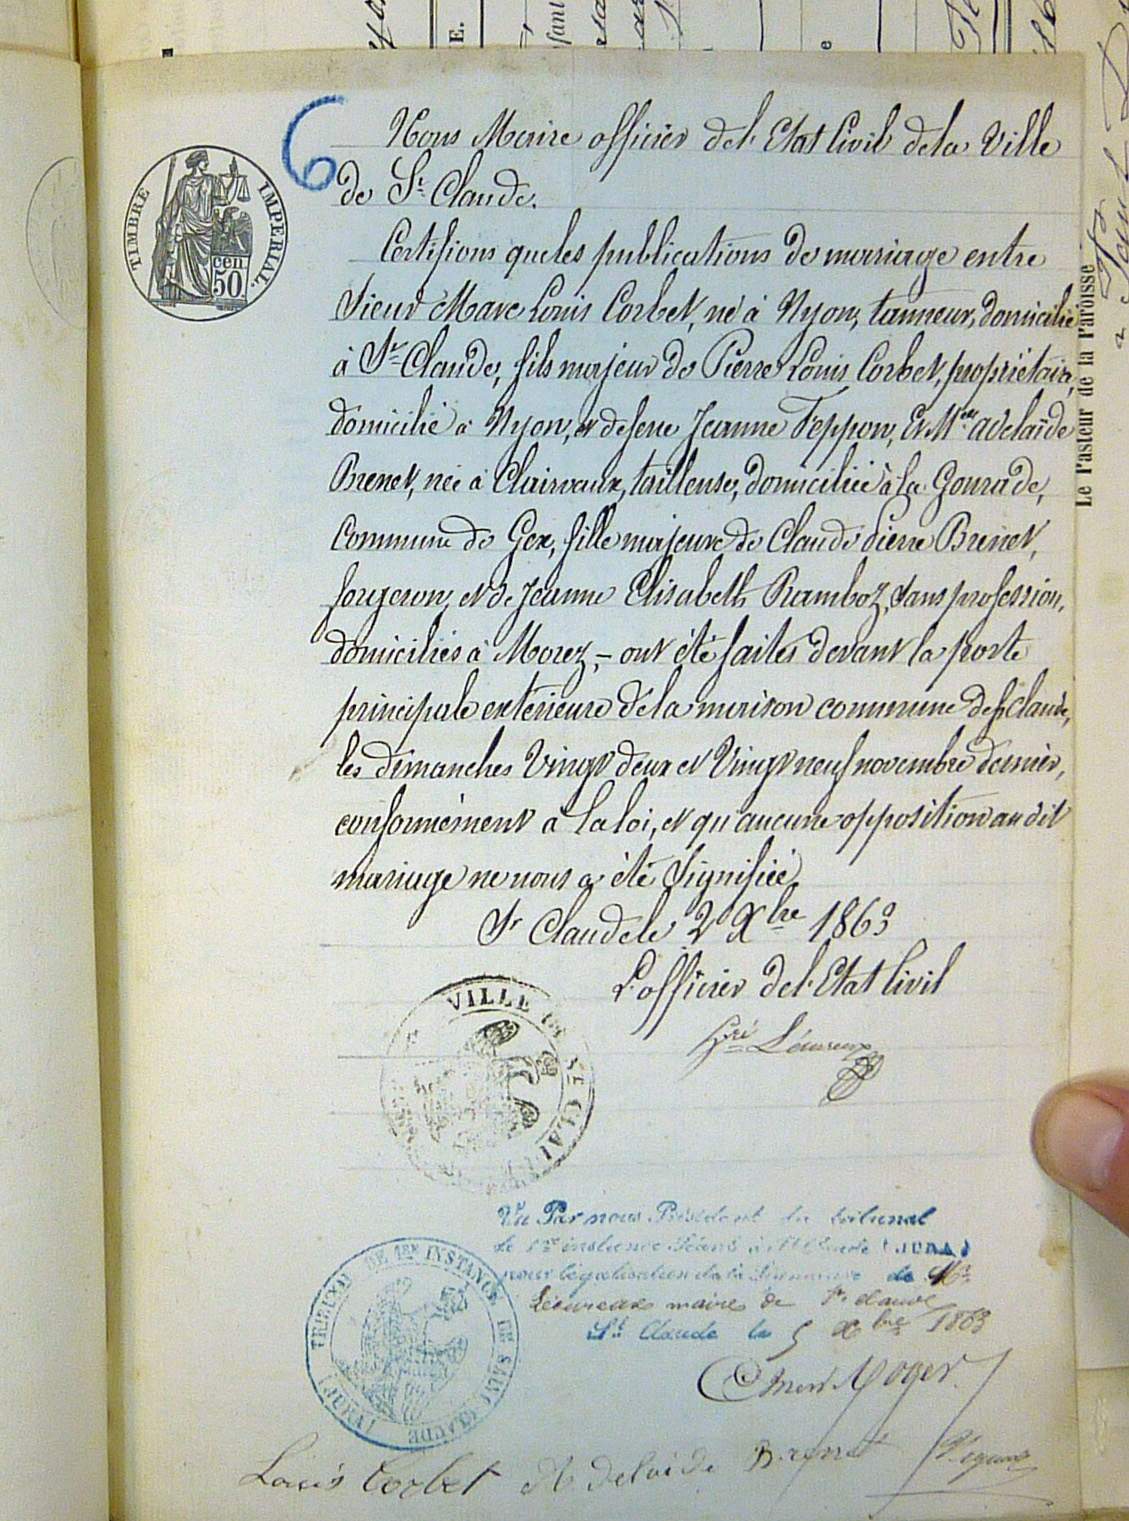 6
TIMBRE IMPERIAL.
50 cen
Nous Maire officier de l'Etat Civil de la Ville
de St Claude.
Certifions que les publications de mariage entre
Sieur Marc Louis Corbet, né à Nyon, tanneur, domicilié
à St Claude, fils majeur de Pierre Louis Corbet, propriétaire,
domicilié à Nyon, et de feue Jeanne Teppon, Et Melle adelaïde
Brenet, née à Clairvaux, tailleuse, domiciliée à la
Commune de Gex, fille majeure de Claude Pierre Brenet,
forgeron, et de Jeanne Elisabeth Ramboz, sans profession,
domiciliés à Morez, – ont été faites devant la porte
principale extérieure de la maison commune de St Claude,
les dimanches Vingt deux et Vingt neuf novembre dernier,
conformément à la loi, et qu'aucune opposition au dit
mariage ne nous a été signifiée.
St Claude le 2 Xbre 1863
L'officier de l'Etat Civil
VILLE DE ST CLAUDE
Vu Par nous Président du tribunal
de 1re instance Séant à St Claude (JURA)
pour légalisation de la Signature de Mr
maire de St Claude
St Claude le 5 Xbre 1863
TRIBUNAL DE 1ERE INSTANCE DE SAINT CLAUDE (JURA)
Louis Corbet Adelaide Brenet
Le Pasteur de la Paroisse